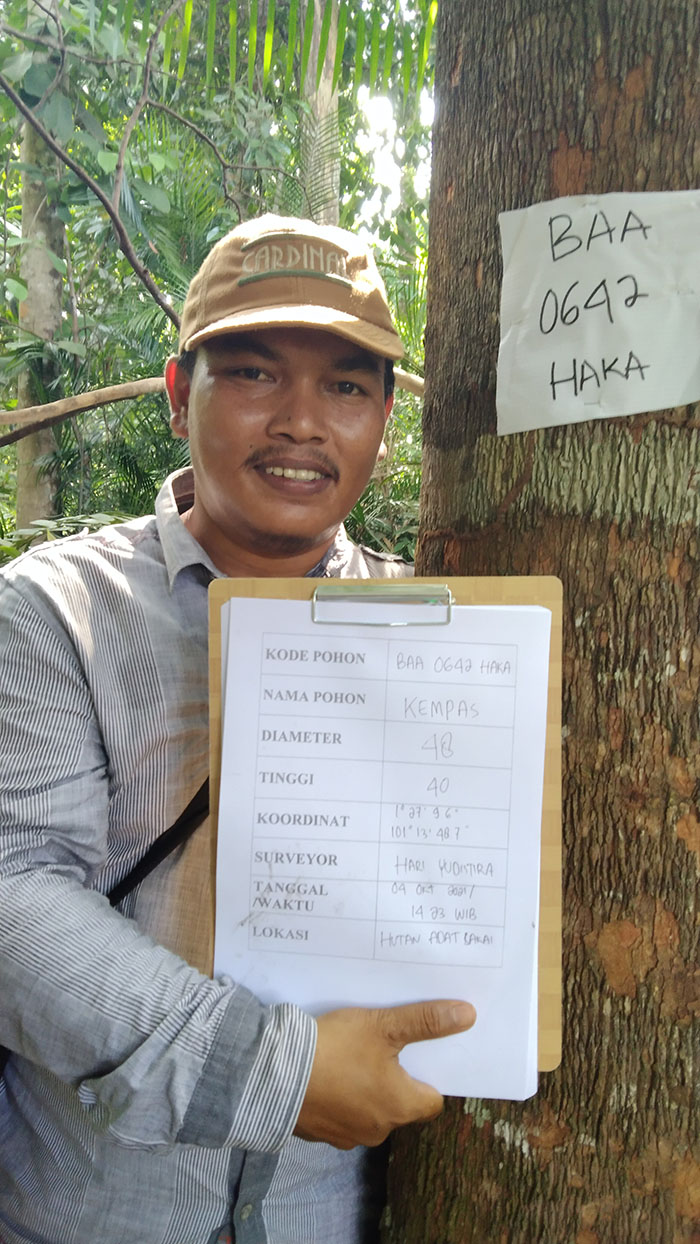 CARDINAL
BAA
0642
HAKA
KODE POHON BAA 0642 HAKA
NAMA POHON KEMPAS
DIAMETER 48
TINGGI 40
KOORDINAT 1° 27' 9 6"
101° 13' 48 7"
SURVEYOR HARI YUDISTIRA
TANGGAL 04 OKT 2021/
/WAKTU 14 23 WIB
LOKASI HUTAN ADAT